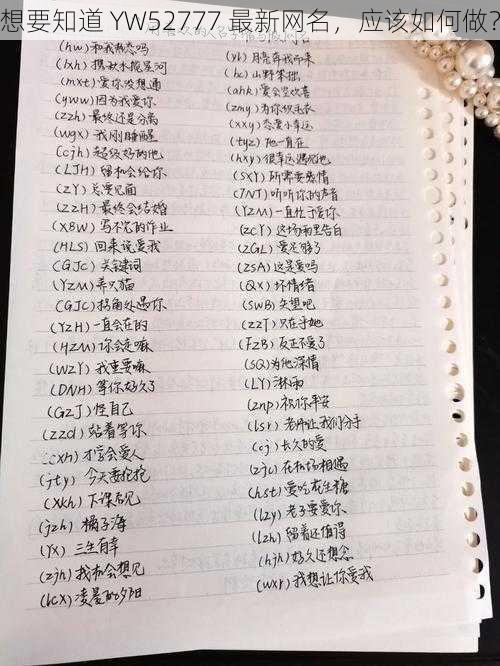 想要知道 YW52777 最新网名，应该如何做？
(hw) 和我热恋吗
(lxh) 携秋水揽星河
(mxt) 爱你没想通
(yww) 因为我爱你
(zzh) 最终还是分离
(wgx) 我刚睡醒
(cjh) 超级好的他
(LJH) 留和会给你
(ZY) 总要见面
(ZZH) 最终会结婚
(XBW) 写不完的作业
(HLS) 回来说爱我
(GJC) 关键词
(YZM) 养只猫
(GJC) 拐角处遇你
(YZH) 一直会在的
(HZM) 你会走嘛
(WZY) 我重要嘛
(DNH) 等你好久了
(GZJ) 怪自己
(zzd) 站着等你
不学会爱人
(jty) 今天要抱抱
(xkh) 下课看见
(jzh) 橘子海
(YX) 三生有幸
(zjh) 我和会想见
(lcx) 凌晨的夕阳
(yb) 月亮奔我而来
(bc) 山野笨拙
(ahk) 爱会至欢喜
(zmy) 为你织毛衣
(xxy) 恋爱小幸运
(tyz) 他一直在
(hxy) 很幸运遇见他
(SXY) 所需要爱情
(7NT) 听听你的声音
(YZM) 一直忙于爱你
(zcY) 这场雨里告白
(ZGL) 爱足够了
(ZSA) 这是爱吗
(QX) 坏情绪
(SWB) 失望吧
(ZZT) 只在乎她
(FZB) 反正不爱了
(SQ) 为他深情
(LY) 淋雨
(znp) 祝你平安
(lsr) 老师让我们分手
(cj) 长久的爱
(zjc) 在机场相遇
(hst) 爱吃花生糖
(lzy) 老子要爱你
(lzh) 留着还值得
(hjh) 好久还想念
(wxr) 我想让你爱我